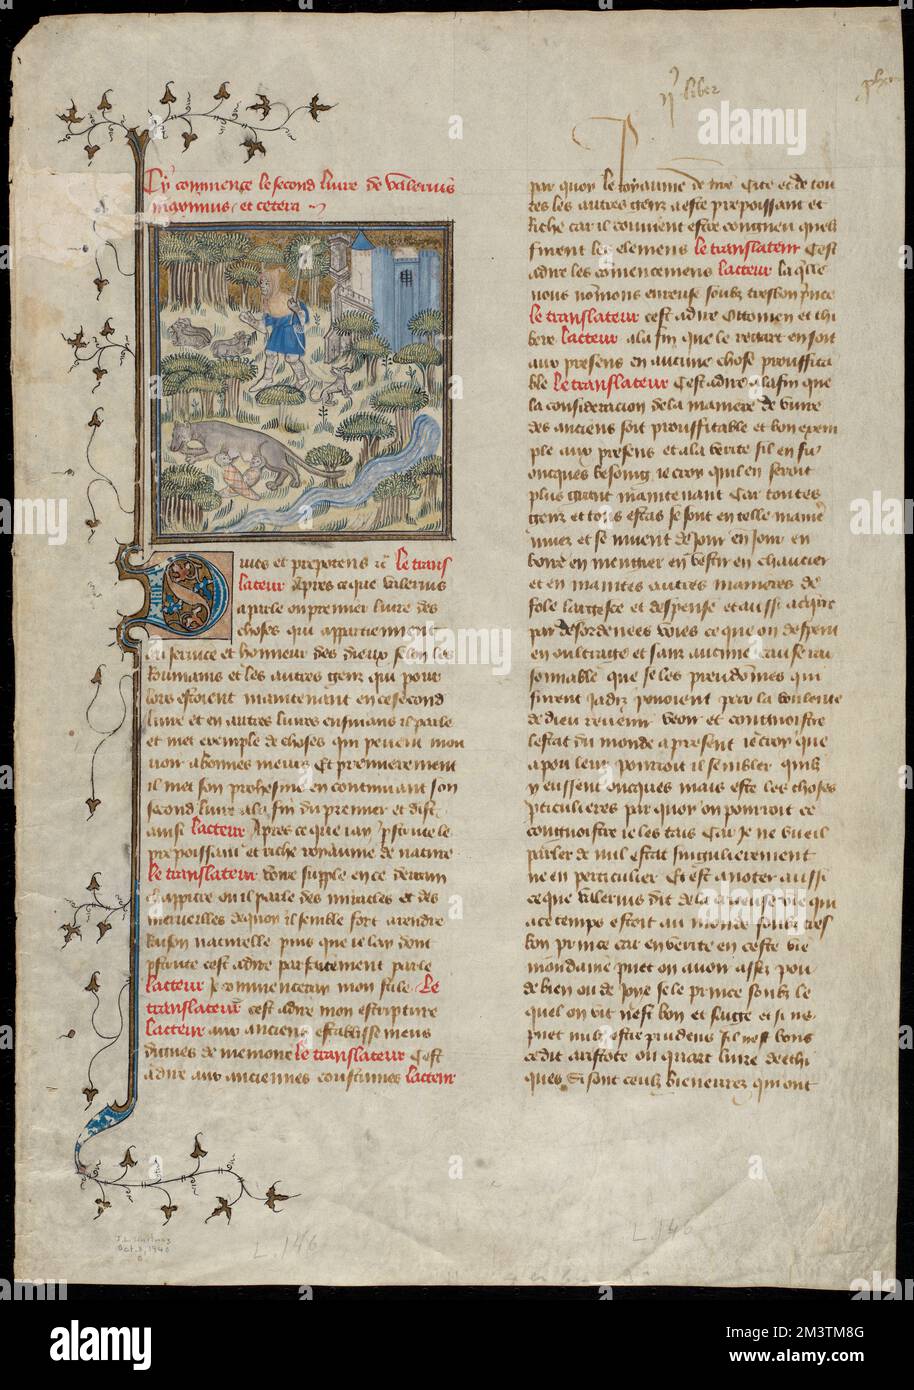 ij liber
Cy commence le second livre de Valerius
maximus et cetera
uues et prepotens rc le trans
lateur Apres ce que Valerius
a parle ou premier livre des
choses qui appartiennent
au service et honneur des dieux selon les
Roumains et les autres gens qui pour
lors estoient maintenant en ce second
livre et en autres livres ensivans il parle
et met exemple de choses qui peuent mou
voir a bonnes meurs Et premierement
il met son prohesme en continuant son
second livre a la fin du premier et dist
ainsi lacteur Apres ce que iay
prepoissant et riche royaume de nature
le translateur
chapitre ou il parle des miracles et des
merveilles de quoy il semble fort a rendre
Raison naturelle puis que ie lay dont
cest adire parfaitement parle
lacteur Je commenceray mon stile Le
translateur cest adire mon escripture
lacteur aux anciens establissemens
dignes de memoire le translateur Cest
adire aux anciennes coustumes lacteur
par quoy le royaume de nre Cite et de tou
tes les autres gens a este prepoissant et
Riche car il convient estre congneu quelz
furent les elemens le translateur Cest
adire les comencemens lacteur laqlle
nous nommons eureuse soubz tresbon pnce
le translateur cest adire Ottovien et thi
bere lacteur a la fin que le regart en soit
aux presens en aucune chose prouffita
ble le translateur Cest adire a la fin que
la consideracion de la maniere de vivre
des anciens soit prouffitable et bon exem
ple aux presens et a la verite sil en fu
oncques besoing ie croy quil en seroit
plus grant maintenant Car toutes
gens et tous estas se sont en telle manie
muez et se muent de jour en jour en
boire en mengier en vestir en chaucier
et en maintes autres manieres de
fole largesce et despense et aussi acqrre
par desordenees voies ce que on despent
en oultrage et sans aucune cause rai
sonnable que se les preudommes qui
furent jadiz pouoient par la voulente
de dieu revenir veoir et congnoistre
lestat du monde a present ie croy que
a pou leur pourroit il sembler quilz
y eussent oncques mais este les choses
pticulieres par quoy on pourroit ce
congnoistre ie les tais Car je ne vueil
parler de nul estat singulierement
ne en particulier Et est a noter aussi
ce que Valerius dit de la eureuse vie qui
a ce temps estoit au monde soubz tres
bon prince car en verite en ceste vie
mondaine puet on avoir assez pou
de bien ou de joye se le prince soubz le
quel on vit nest bon et sage et si ne
puet nulz estre prudens sil nest bons
ce dit aristote ou quart livre dethi
ques Si sont ceulz bieneurez qui ont
J. L. Harling
Oct. 8, 1940
L.146
L.146
alamy
alamy
alamy
alamy
Image ID: 2M3TM8G
www.alamy.com